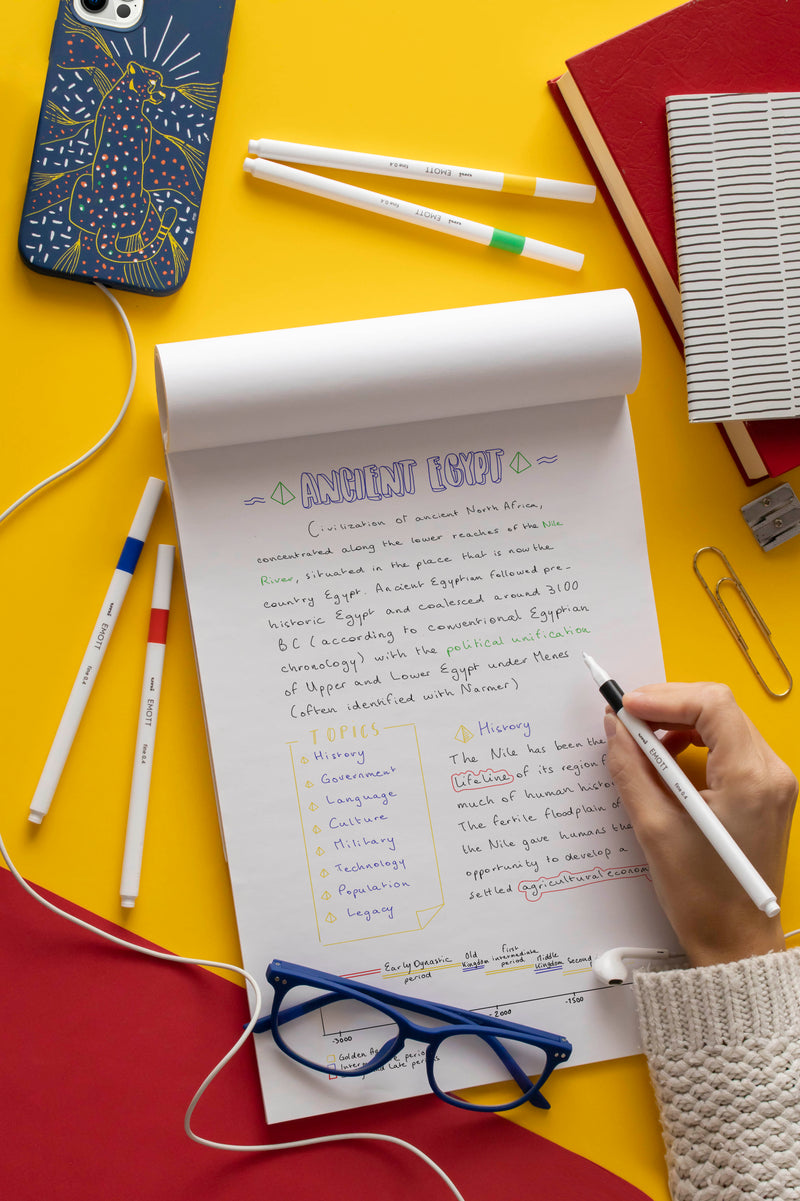 fine 0.4 EMOTT uni
fine 0.4 EMOTT uni
ANCIENT EGYPT
Civilization of ancient North Africa,
concentrated along the lower reaches of the Nile
River, situated in the place that is now the
country Egypt. Ancient Egyptian followed pre-
historic Egypt and coalesced around 3100
BC (according to conventional Egyptian
chronology) with the political unification
of Upper and Lower Egypt under Menes
(often identified with Narmer)
uni EMOTT fine 0.4
uni EMOTT fine 0.4
uni EMOTT fine 0.4
TOPICS
History
Government
Language
Culture
Military
Technology
Population
Legacy
History
The Nile has been the
lifeline of its region
much of human
The fertile floodplain of
the Nile gave humans the
opportunity to develop a
settled agricultural
Early Dynastic period
Old Kingdom
First intermediate period
Middle Kingdom
Second
-3000
-2000
-1500
Golden
and Late periods